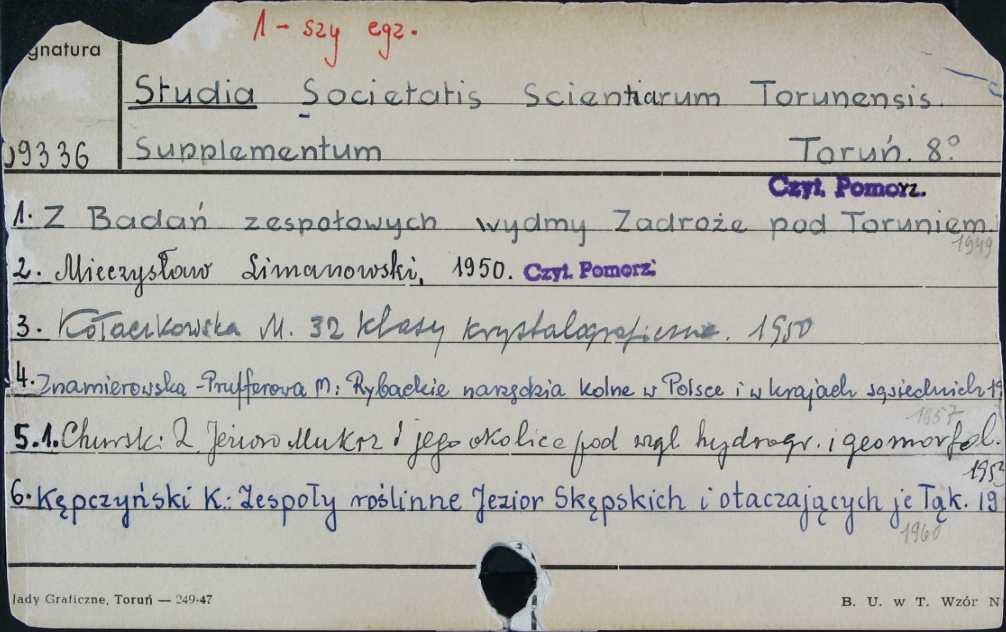 1-szy egz.
gnatura
Studia Societatis Scientiarum Torunensis.
09336 Supplementum Toruń. 8°
Czyt. Pomorz.
1. Z Badań zespołowych wydmy Zadroże pod Toruniem.
1949
2. Mieczysław Limanowski, 1950. Czyt. Pomorz.
3. Kołaczkowska M. 32 klasy krystalograficzne. 1950
4. Znamierowska-Prufferowa M: Rybackie narzędzia kolne w Polsce i w krajach sąsiednich 19
1957
5.1. Churski Z. Jezioro Mukrz i jego okolice pod wzgl. hydrogr. i geomorfol.
195
6. Kępczyński K.: Zespoły roślinne Jezior Skępskich i otaczających je łąk. 19
1960
łady Graficzne, Toruń — 249-47 B. U. w T. Wzór N